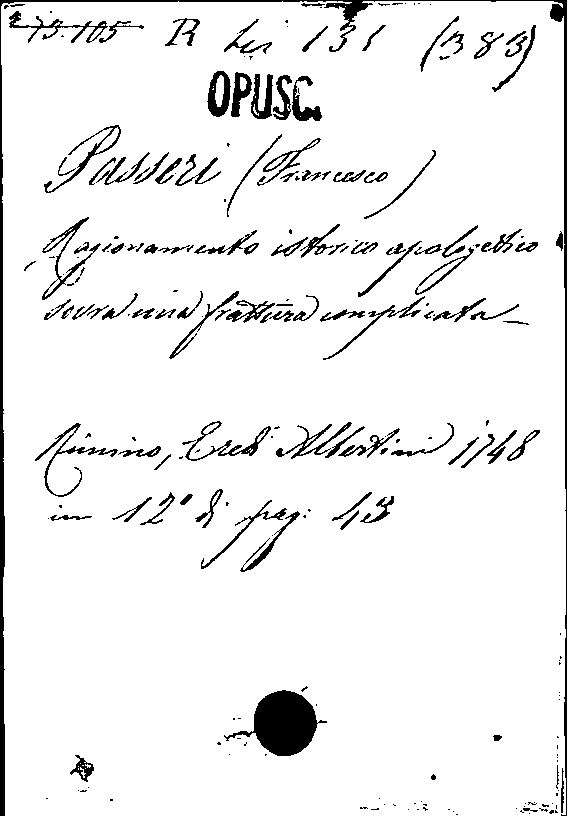 73.105 R Lei 131 (383)
OPUSC.
Passeri (Francesco)
Ragionamento istorico apologettico
sovra una frattura complicata_
Rimino, Eredi Albertini 1748
in 12° di pag: 43